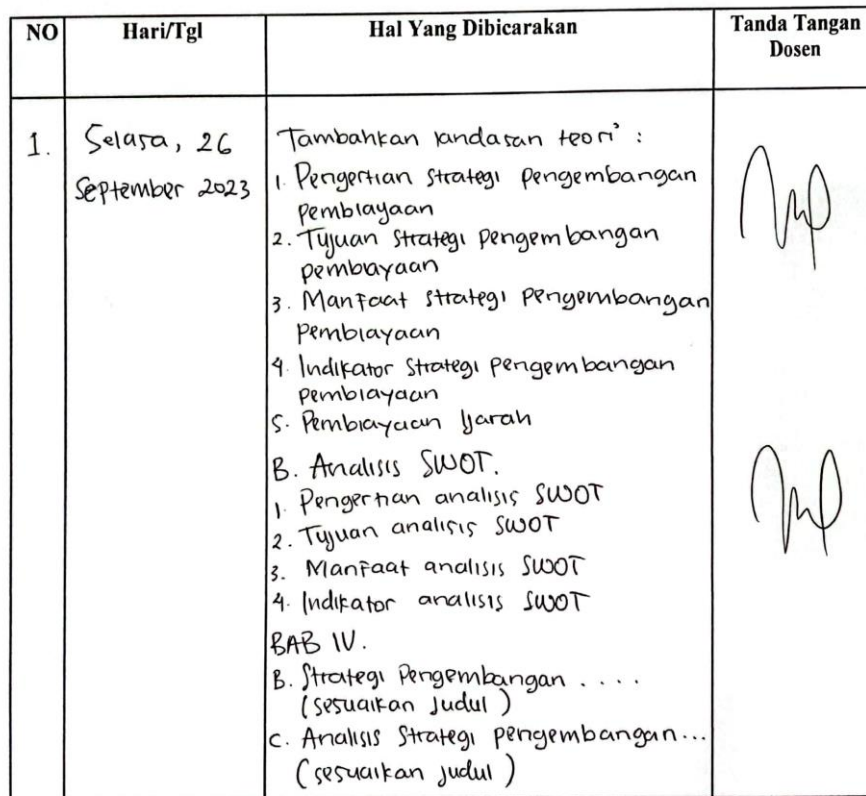 NO Hari/Tgl Hal Yang Dibicarakan Tanda Tangan
Dosen
1. Selasa, 26
September 2023
Tambahkan landasan teori :
1. Pengertian Strategi pengembangan
pembiayaan
2. Tujuan Strategi pengembangan
pembiayaan
3. Manfaat strategi pengembangan
Pembiayaan
4. Indikator strategi pengembangan
pembiayaan
5. Pembiayaan Ijarah
B. Analisis SWOT.
1. Pengertian analisis SWOT
2. Tujuan analisis SWOT
3. Manfaat analisis SWOT
4. Indikator analisis SWOT
BAB IV.
B. Strategi Pengembangan . . . .
(sesuaikan Judul)
C. Analisis Strategi pengembangan...
(sesuaikan judul)